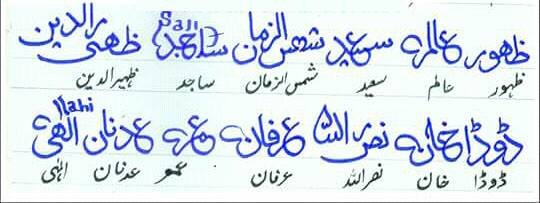 ظہور عالم سعید شمس الزمان ساجد ظہیر الدین
Saji
ظہور عالم سعید شمس الزمان ساجد ظہیرالدین
ڈوڈا خان نصر اللہ عرفان عمر عدنان الٰہی
Ilahi
ڈوڈا خان نصر اللہ عرفان عمر عدنان الٰہی